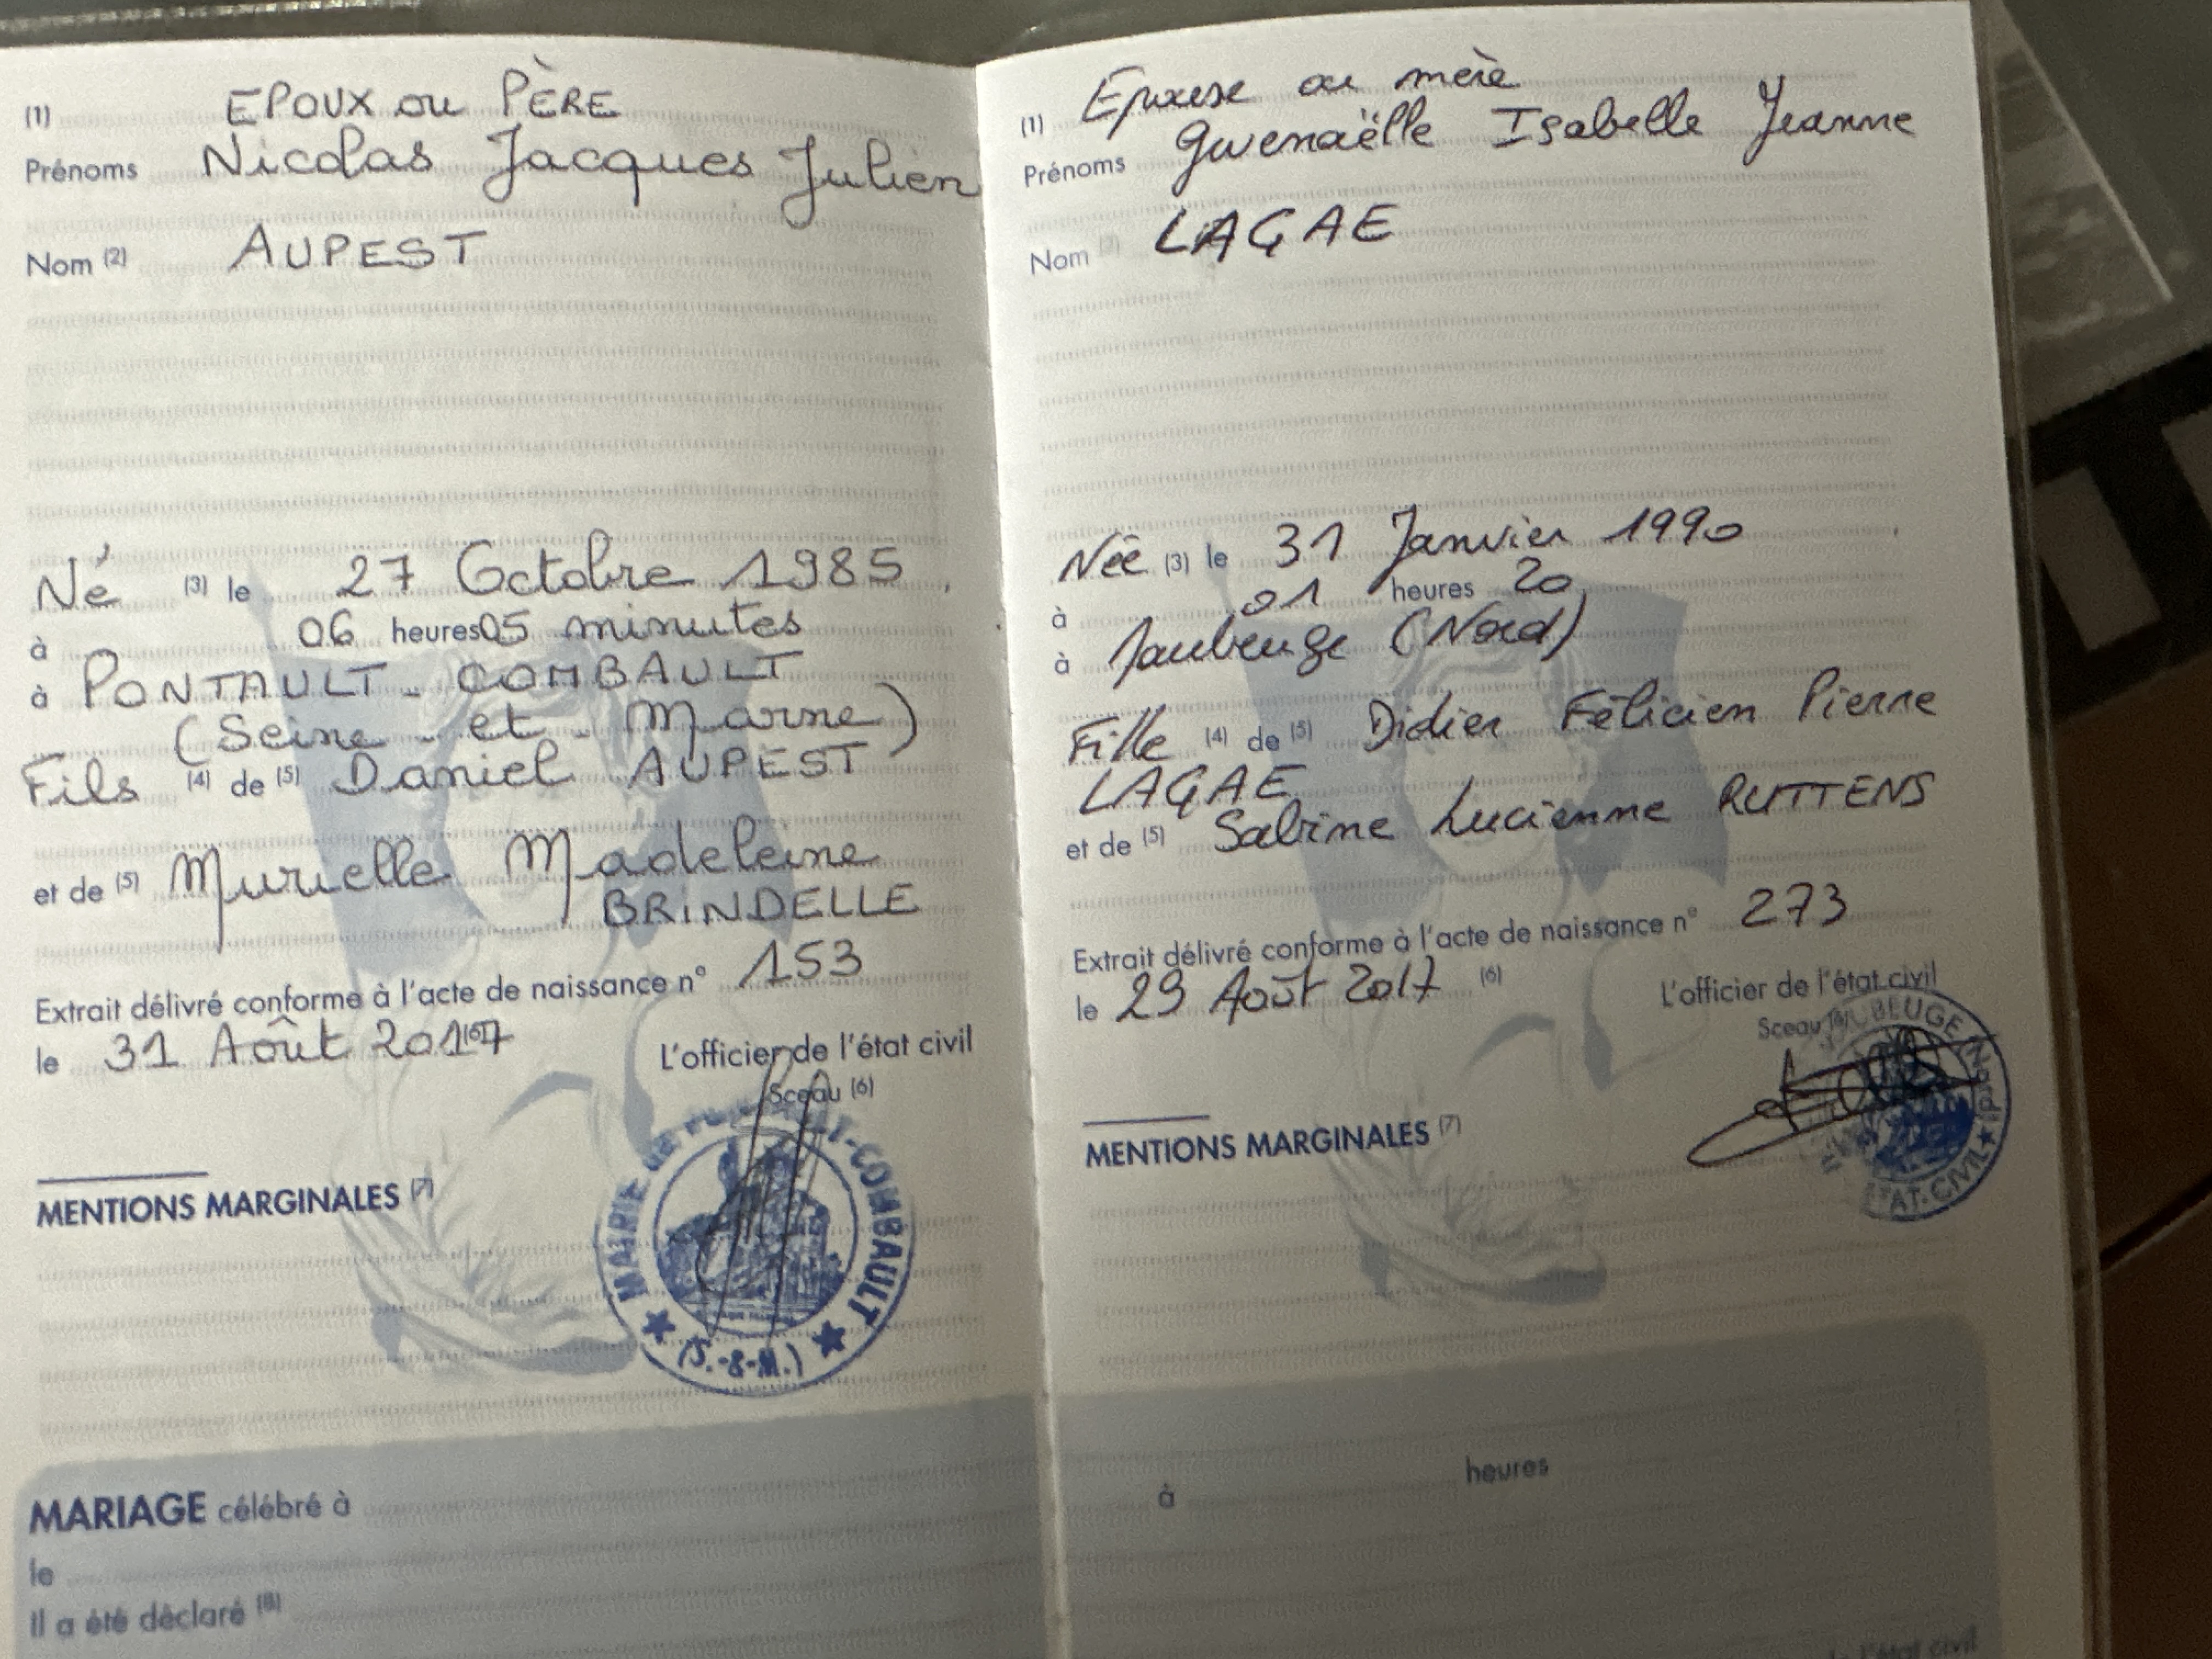 (1) EPOUX ou PÈRE
Prénoms Nicolas Jacques Julien
Nom (2) AUPEST
Né (3) le 27 Octobre 1985
à 06 heures 05 minutes
à PONTAULT-COMBAULT
(Seine-et-Marne)
Fils (4) de (5) Daniel AUPEST
et de (5) Murielle Madeleine
BRINDELLE
Extrait délivré conforme à l'acte de naissance n° 153
le 31 Août 2017 (6)
L'officier de l'état civil
Sceau (6)
MAIRIE DE PONTAULT-COMBAULT
(S.-&-M.)
MENTIONS MARGINALES (7)
MARIAGE célébré à
le
Il a été déclaré (8)
(1) Epouse ou mère
Prénoms Gwenaëlle Isabelle Jeanne
Nom (2) LAGAE
Née (3) le 31 Janvier 1990
à 01 heures 20
à Maubeuge (Nord)
Fille (4) de (5) Didier Félicien Pierre
LAGAE
et de (5) Sabine Lucienne RUTTENS
Extrait délivré conforme à l'acte de naissance n° 273
le 29 Août 2017 (6)
L'officier de l'état civil
Sceau (6)
MAUBEUGE (Nord)
ETAT-CIVIL
MENTIONS MARGINALES (7)
à heures
l'état civil